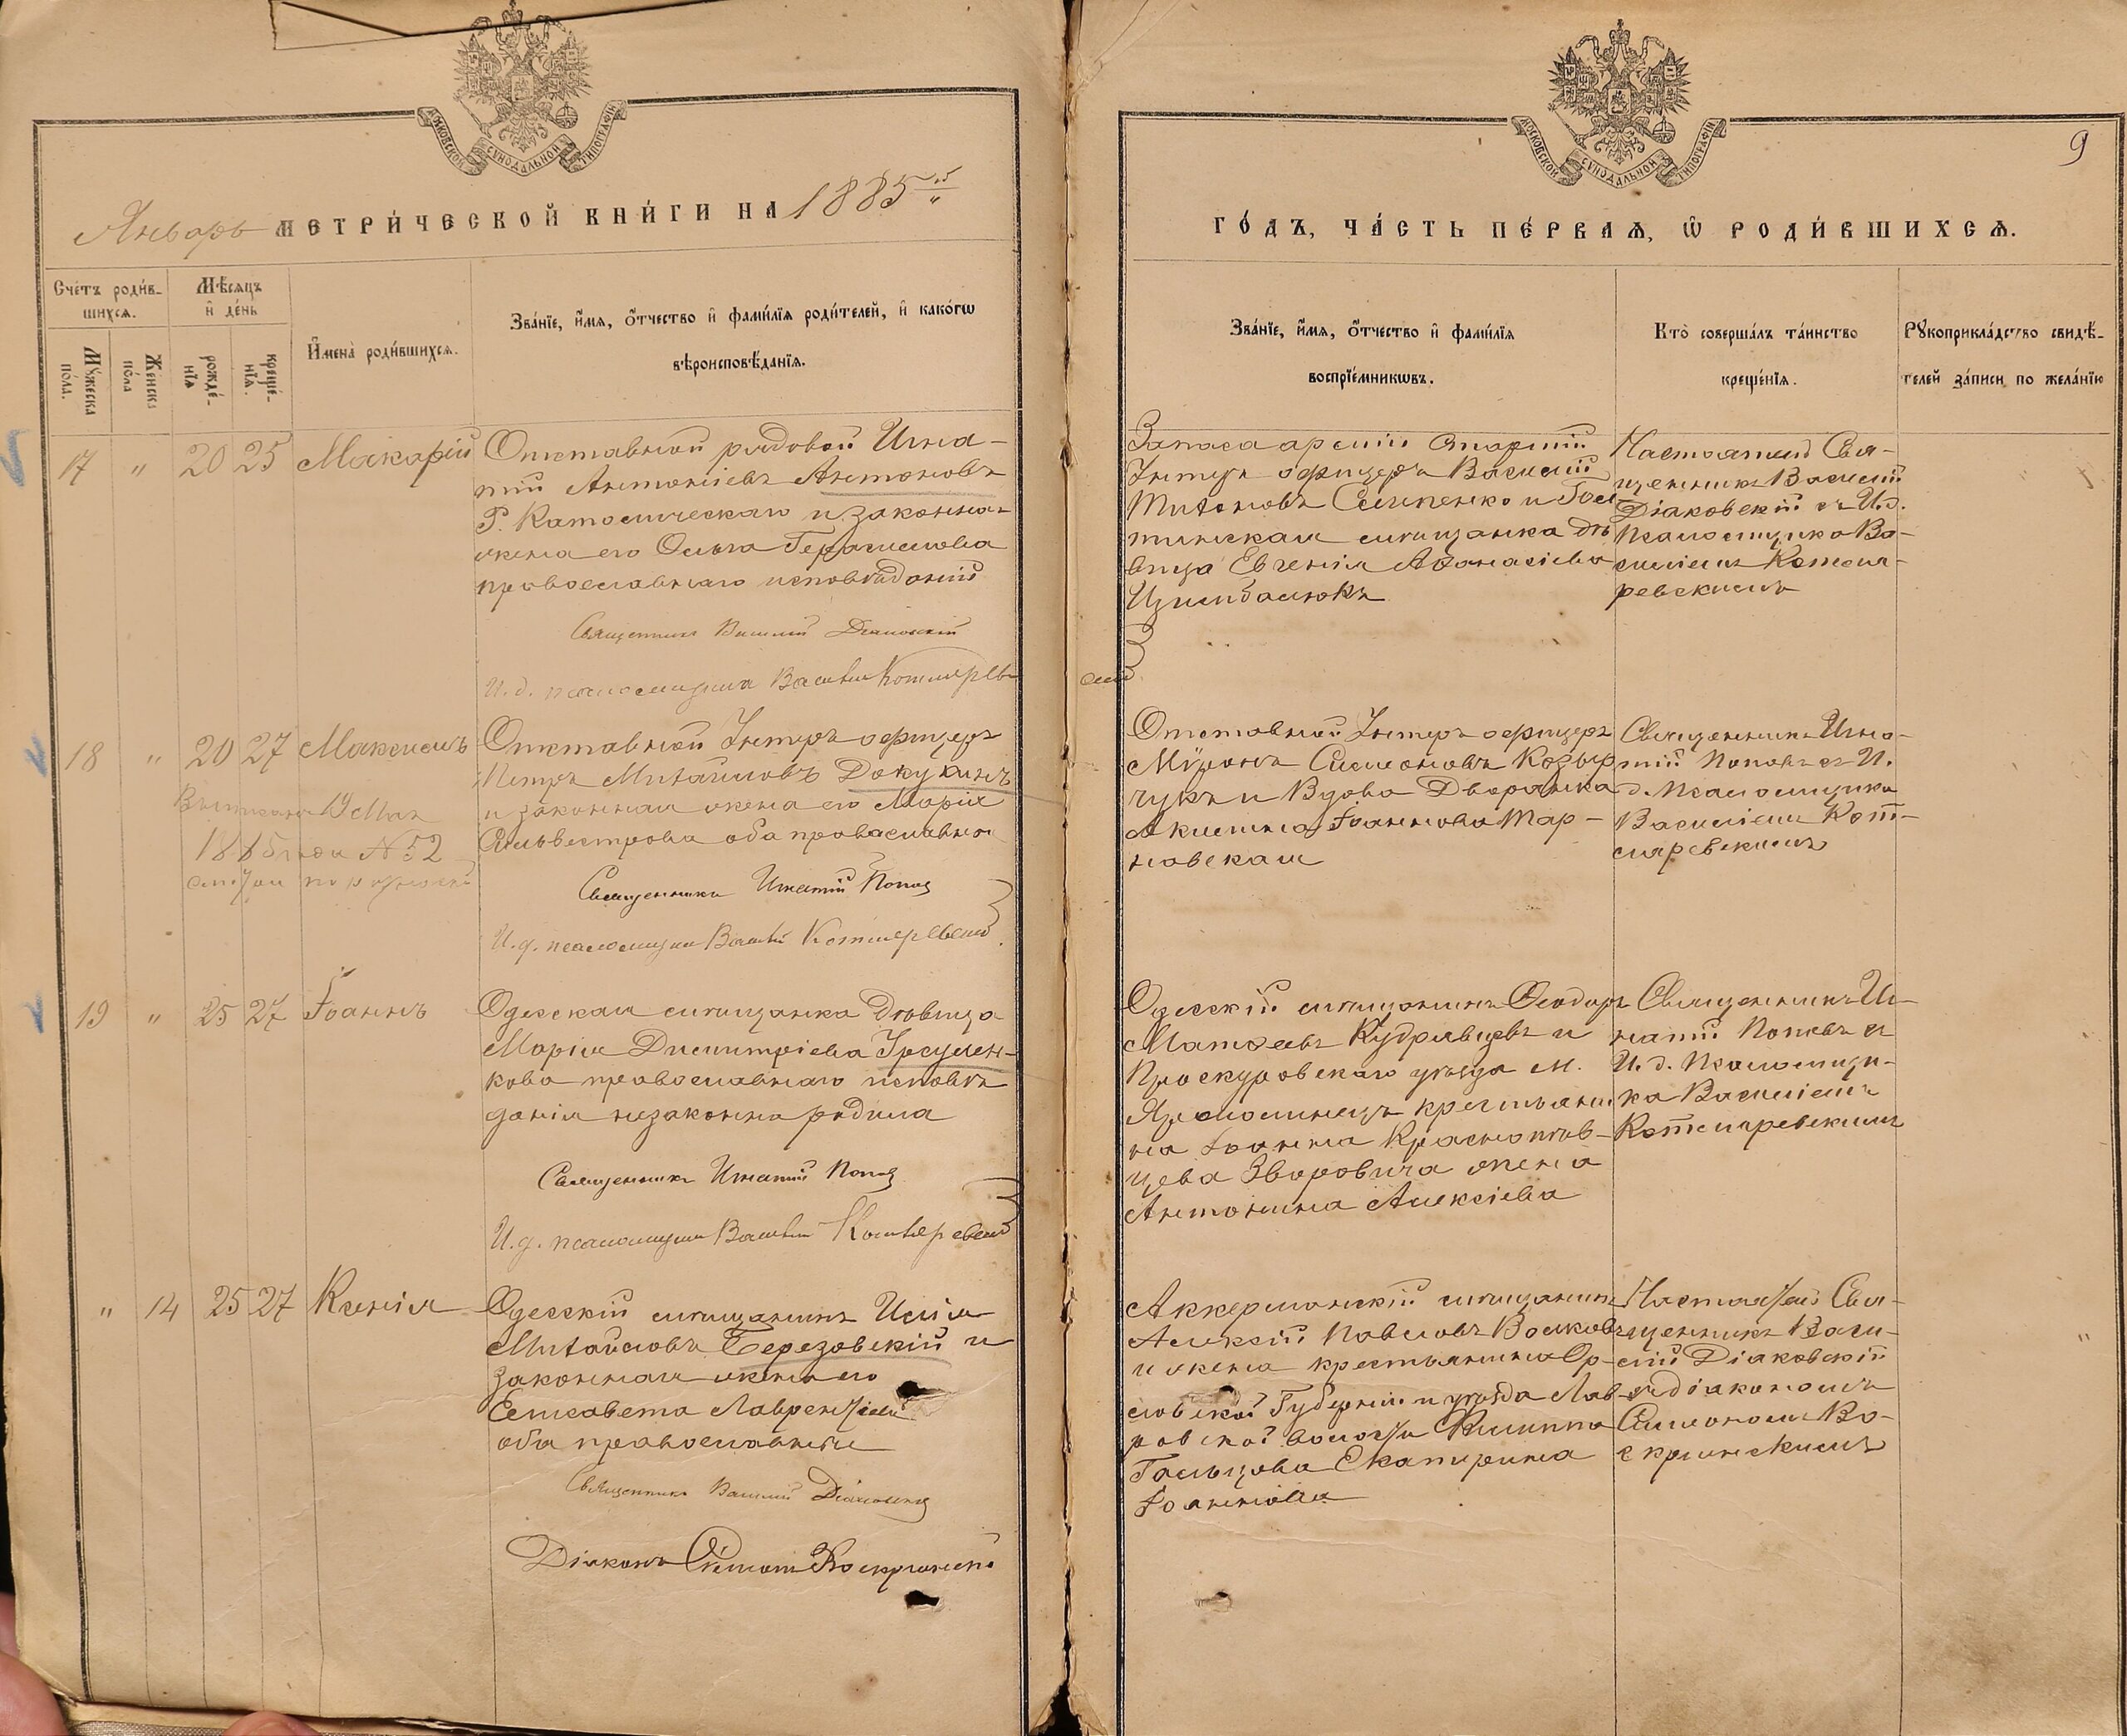 МОСКОВСКОЙ СѴНОДАЛЬНОЙ ТИПОГРАФІИ
Январь МЕТРИ́ЧЕСКОЙ КНИ́ГИ НА 1885
Счетъ роди́в-
шихсѧ.
Мѣсѧцъ
и҆ де́нь
Мꙋжеска
по́ла.
Же́нска
по́ла
рожде́-
нїѧ
креще́-
нїѧ.
И҆мена̀ роди́вшихсѧ.
Зва́нїе, и҆́мѧ, ѻ҆́тчество и҆ фами́лїѧ роди́телей, и҆ како́гѡ
вѣроисповѣ́данїѧ.
17 " 20 25 Макарій
Отставной рядовой Игна-
тій Антоніевъ Антоновъ
Р. Католическаго и законная
жена его Ольга Герасимова
православнаго исповѣданій
Священникъ Василій Діаковскій
И. д. псаломщика Василій Котляревскій
18 " 20 27 Максимъ
Отставной Унтеръ офицеръ
Петръ Михайловъ Докукинъ
и законная жена его Марія
Сильвестрова оба православные
19 Мая
№ 52
Священникъ Игнатій Поповъ
И. д. псаломщика Василій Котляревскій
19 " 25 27 Іоаннъ
Одесская мѣщанка Дѣвица
Марія Димитріева
кова православнаго исповѣ
данія незаконно родила
Священникъ Игнатій Поповъ
И. д. псаломщика Василій Котляревскій
" 14 25 27 Ксенія
Одесскій мѣщанинъ Илія
Михайловъ Березовскій и
законная жена его
Елисавета Лаврентіева
оба православные
Священникъ Василій Діаковскій
Діаконъ Симеонъ Воскрынскій
МОСКОВСКОЙ СѴНОДАЛЬНОЙ ТИПОГРАФІИ
9
ГО́ДЪ, ЧА́СТЬ ПЕ́РВАѦ, Ѡ҆ РОДИ́ВШИХСѦ.
Зва́нїе, и҆́мѧ, ѻ҆́тчество и҆ фами́лїѧ
воспрїе́мникѡвъ.
Кто̀ соверша́лъ та́инство
креще́нїѧ.
Рꙋкоприкла́дство свидѣ́-
телей за́писи по жела́нїю
Запаса арміи старшій
Унтеръ офицеръ Василій
Титовъ Семпенко и
мѣщанка дѣ
вица Евгенія Аѳанасіева
Цимбалюкъ
Настоятель Свя-
щенникъ Василій
Діаковскій съ И. д.
Псаломщика Ва-
силіемъ Котля-
ревскимъ
Отставной Унтеръ офицеръ
Мѵронъ Симеоновъ Козыр
чукъ и Вдова Дворянка
Акилина Іоаннова Тар-
новская
Священникъ Игна-
тій Поповъ съ И.
д. Псаломщика
Василіемъ Кот-
ляревскимъ
Одесскій мѣщанинъ Ѳеодоръ
Матѳеевъ Кудрявцевъ и
Проскуровскаго уѣзда м.
Ярмолинецъ крестьяни
на Іоанна
цева Зворовича жена
Антонина Алексіева
Священникъ Иг-
натій Поповъ съ
И. д. Псаломщи-
ка Василіемъ
Котляревскимъ
Аккерманскій мѣщанинъ
Алексій Павловъ Волковъ
и жена крестьянина Ор-
ловской Губерніи и уѣзда Лав-
ровской волости Филиппа
Гольцова Екатерина
Іоаннова
Настоятель Свя-
щенникъ Васи-
лій Діаковскій
съ діакономъ
Симеономъ Во-
скрынскимъ